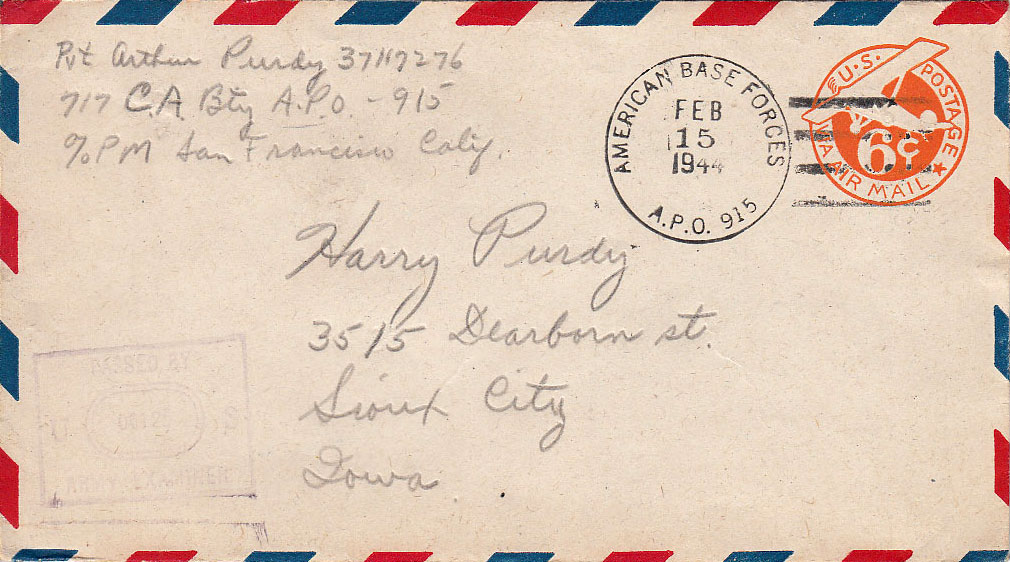 Pvt Arthur Purdy 37117276
717 C.A Bty A.P.O - 915
%PM San Francisco Calif.
AMERICAN BASE FORCES
FEB
15
1944
A.P.O. 915
U.S. POSTAGE
6¢
VIA AIR MAIL
Harry Purdy
3515 Dearborn st.
Sioux City
Iowa
PASSED BY
ARMY EXAMINER